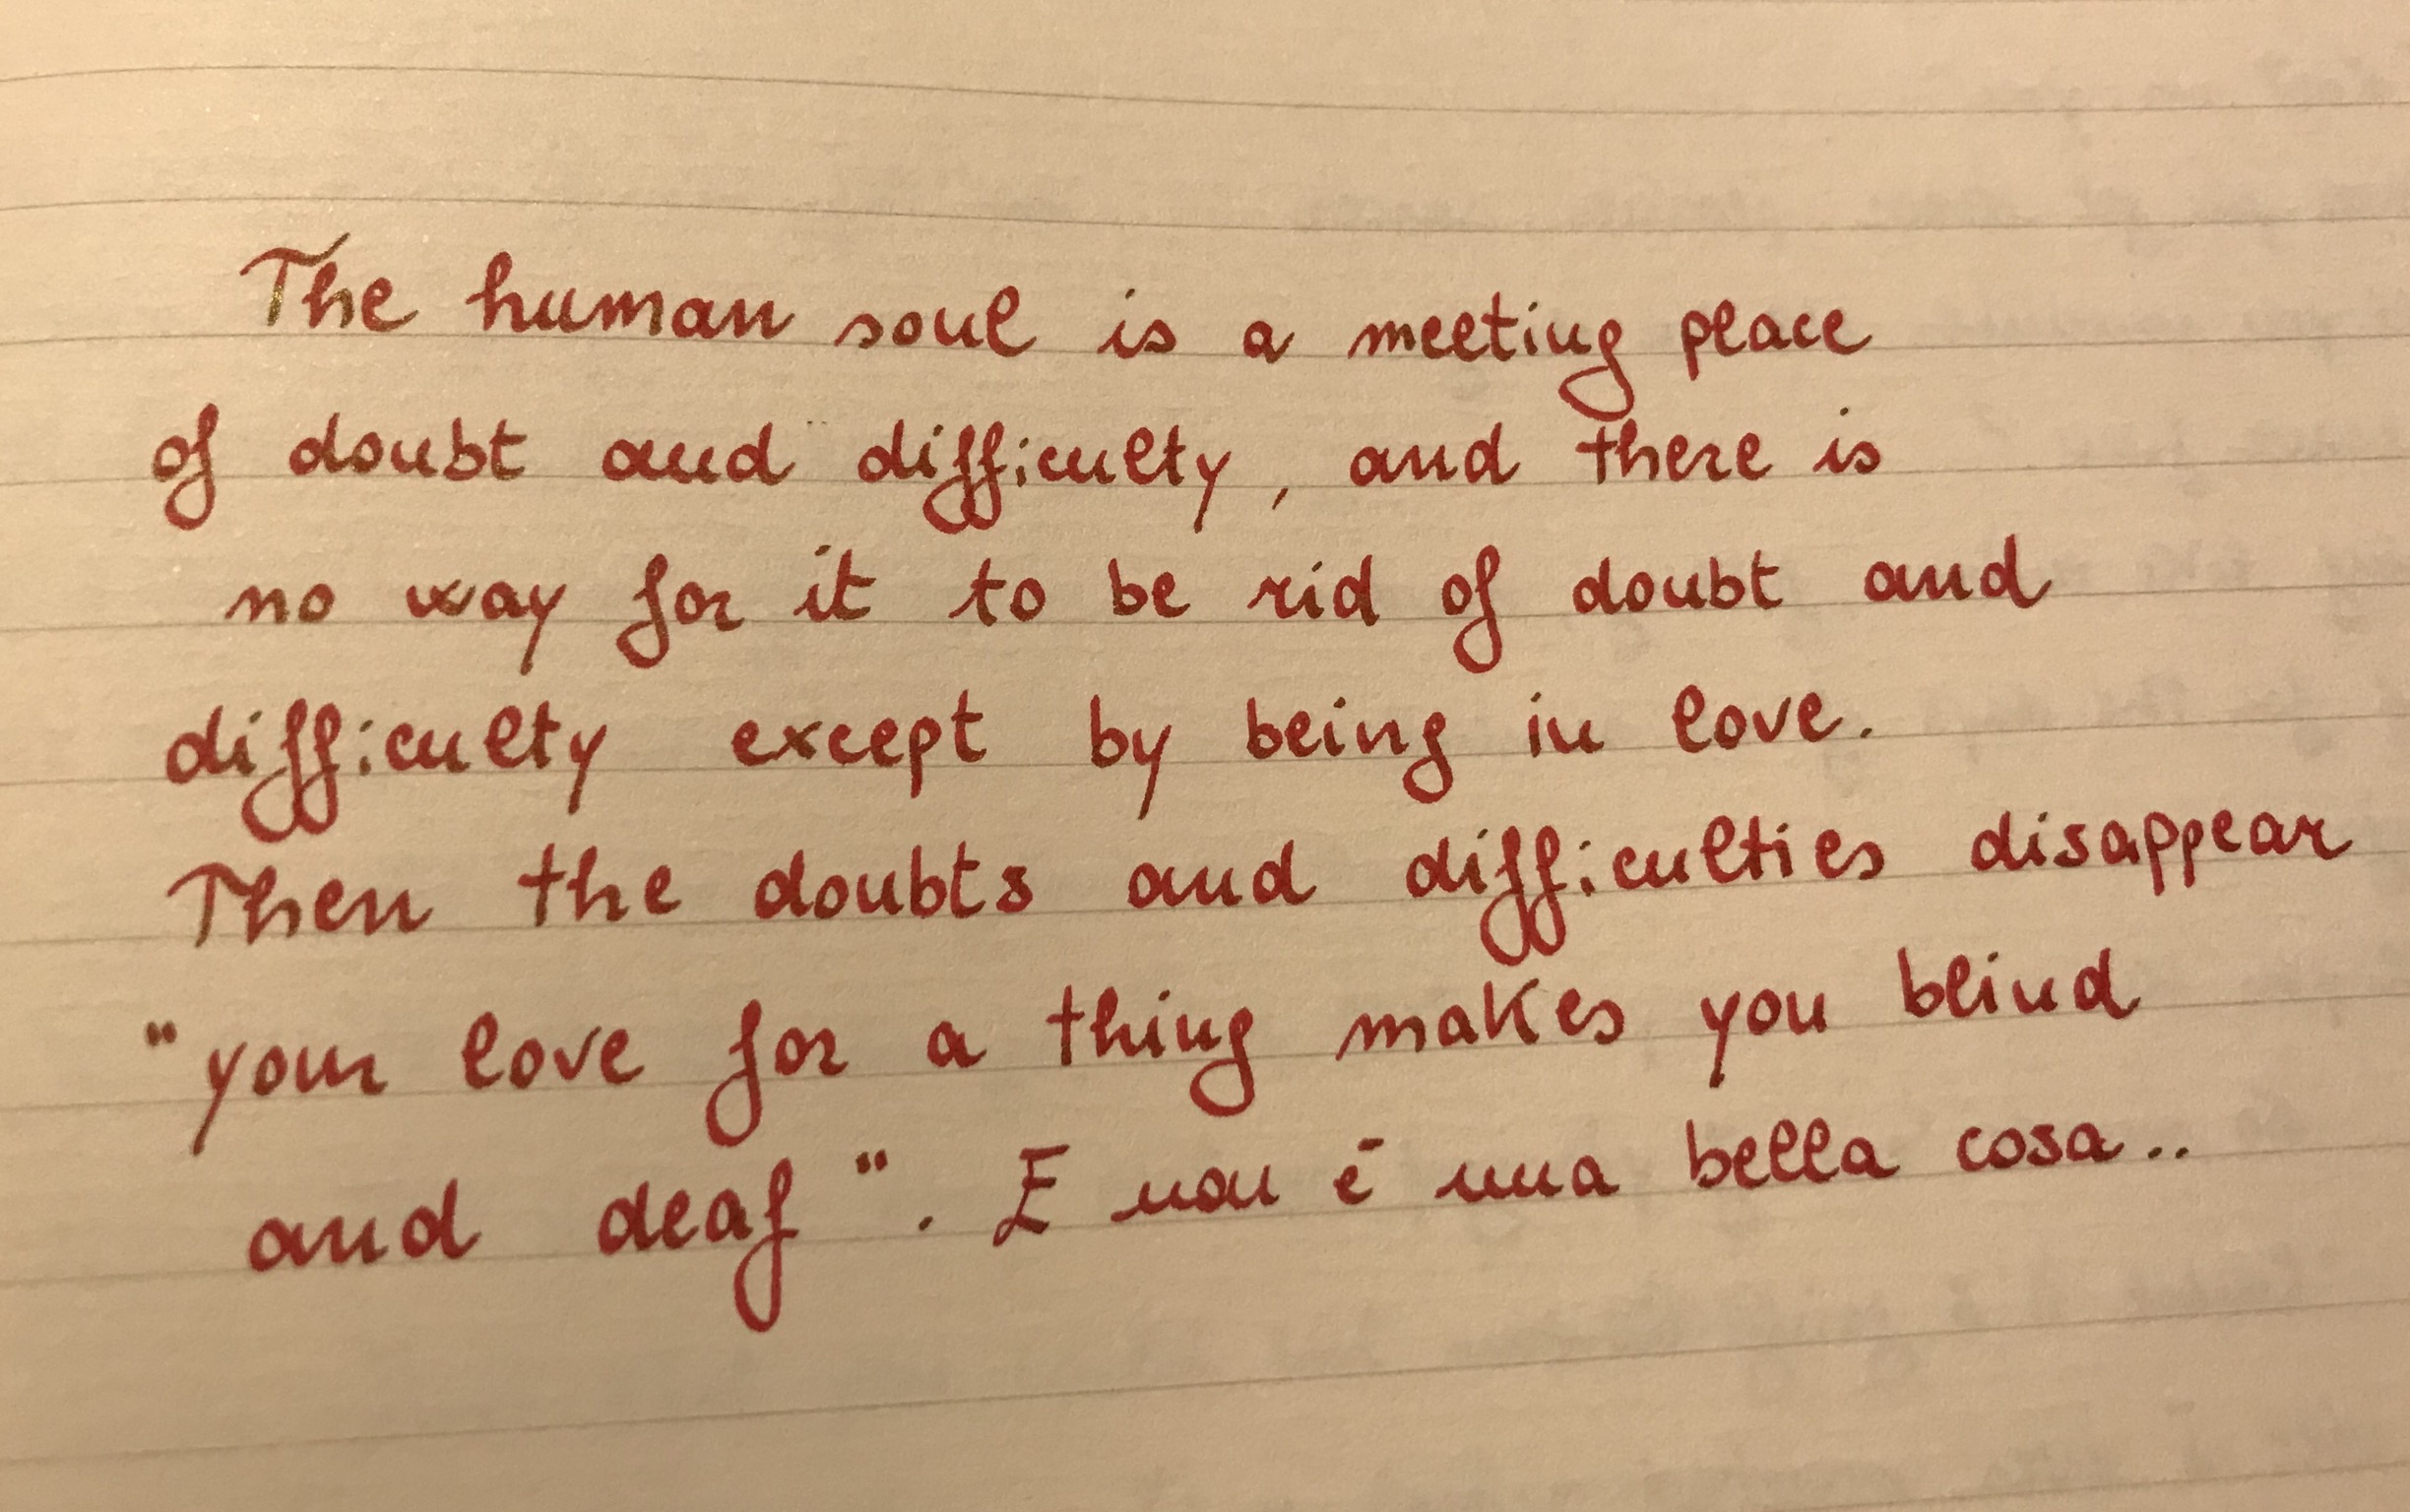 The human soul is a meeting place
of doubt and difficulty, and there is
no way for it to be rid of doubt and
difficulty except by being in love.
Then the doubts and difficulties disappear
"your love for a thing makes you blind
and deaf". E non è una bella cosa..